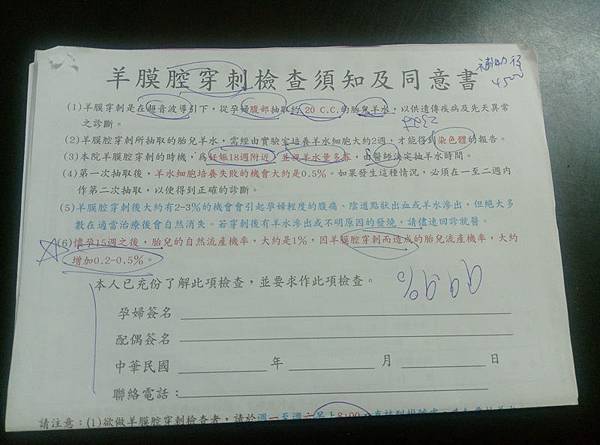 羊膜腔穿刺檢查須知及同意書
補助後
4500
(1)羊膜穿刺是在超音波導引下，從孕婦腹部抽取約 20 C.C.的胎兒羊水，以供遺傳疾病及先天異常
之診斷。
(2)羊膜腔穿刺所抽取的胎兒羊水，需經由實驗室培養羊水細胞大約2週，才能得到染色體的報告。
(3)本院羊膜腔穿刺的時機，為妊娠18週附近，並視羊水量多寡，由醫師決定抽羊水時間。
(4)第一次抽取後，羊水細胞培養失敗的機會大約是0.5%。如果發生這種情況，必須在一至二週內
作第二次抽取，以便得到正確的診斷。
(5)羊膜腔穿刺後大約有2-3%的機會會引起孕婦輕度的腹痛、陰道點狀出血或羊水滲出，但絕大多
數在適當治療後會自然消失。若穿刺後有羊水滲出或不明原因的發燒，請儘速回診就醫。
(6)懷孕15週之後，胎兒的自然流產機率，大約是1%，因羊膜腔穿刺而造成的胎兒流產機率，大約
增加0.2-0.5%。
本人已充份了解此項檢查，並要求作此項檢查。
99.9%
孕婦簽名
配偶簽名
中華民國 年 月 日
聯絡電話：
請注意：(1)欲做羊膜腔穿刺檢查者，請於週一至週六早上8:00